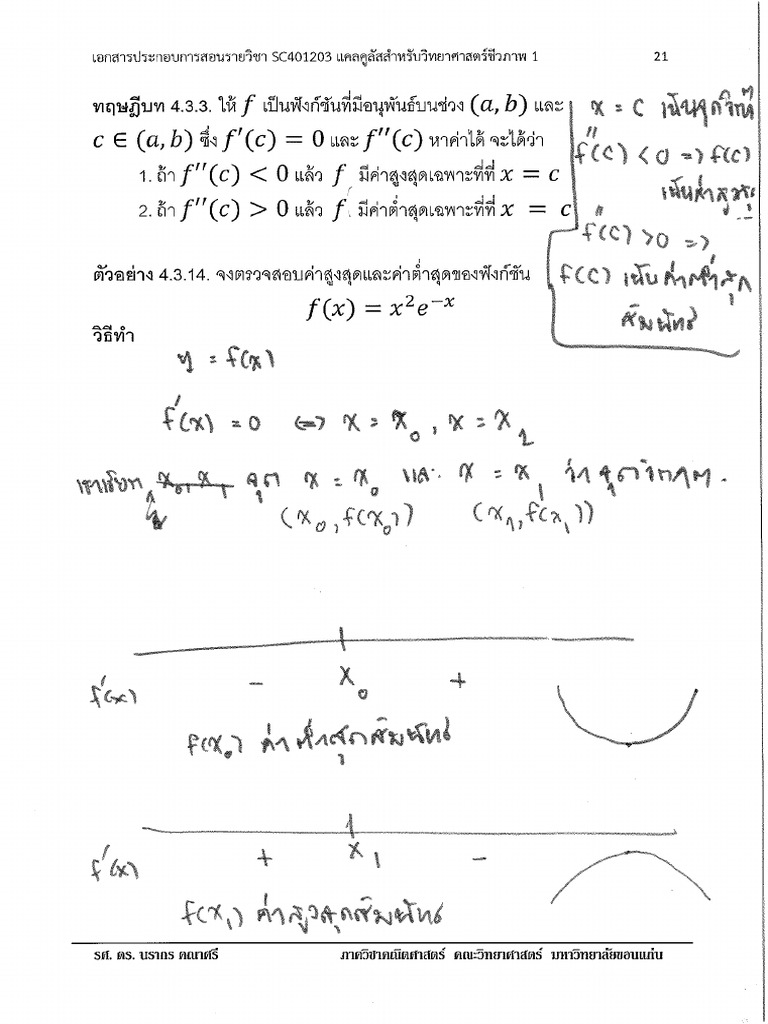 เอกสารประกอบการสอนรายวิชา SC401203 แคลคูลัสสำหรับวิทยาศาสตร์ชีวภาพ 1 21
ทฤษฎีบท 4.3.3. ให้ f เป็นฟังก์ชันที่มีอนุพันธ์บนช่วง (a, b) และ
c ∈ (a, b) ซึ่ง f′(c) = 0 และ f′′(c) หาค่าได้ จะได้ว่า
1. ถ้า f′′(c) < 0 แล้ว f มีค่าสูงสุดเฉพาะที่ที่ x = c
2. ถ้า f′′(c) > 0 แล้ว f มีค่าต่ำสุดเฉพาะที่ที่ x = c
x = c เป็นจุดวิกฤ
f′′(c) < 0 ⇒ f(c)
เป็นค่าสูงสุ
f′′(c) > 0 ⇒
f(c) เป็นค่าต่ำสุด
สัมพัทธ์
ตัวอย่าง 4.3.14. จงตรวจสอบค่าสูงสุดและค่าต่ำสุดของฟังก์ชัน
f(x) = x²e⁻ˣ
วิธีทำ
y = f(x)
f′(x) = 0 ⇔ x = x₀, x = x₁
เราเรียก จุด x = x₀ และ x = x₁ ว่าจุดวิกฤต.
(x₀, f(x₀)) (x₁, f(x₁))
f′(x) - x₀ +
f(x₀) ค่าต่ำสุดสัมพัทธ์
f′(x) + x₁ -
f(x₁) ค่าสูงสุดสัมพัทธ์
รศ. ดร. นรากร คณาศรี ภาควิชาคณิตศาสตร์ คณะวิทยาศาสตร์ มหาวิทยาลัยขอนแก่น